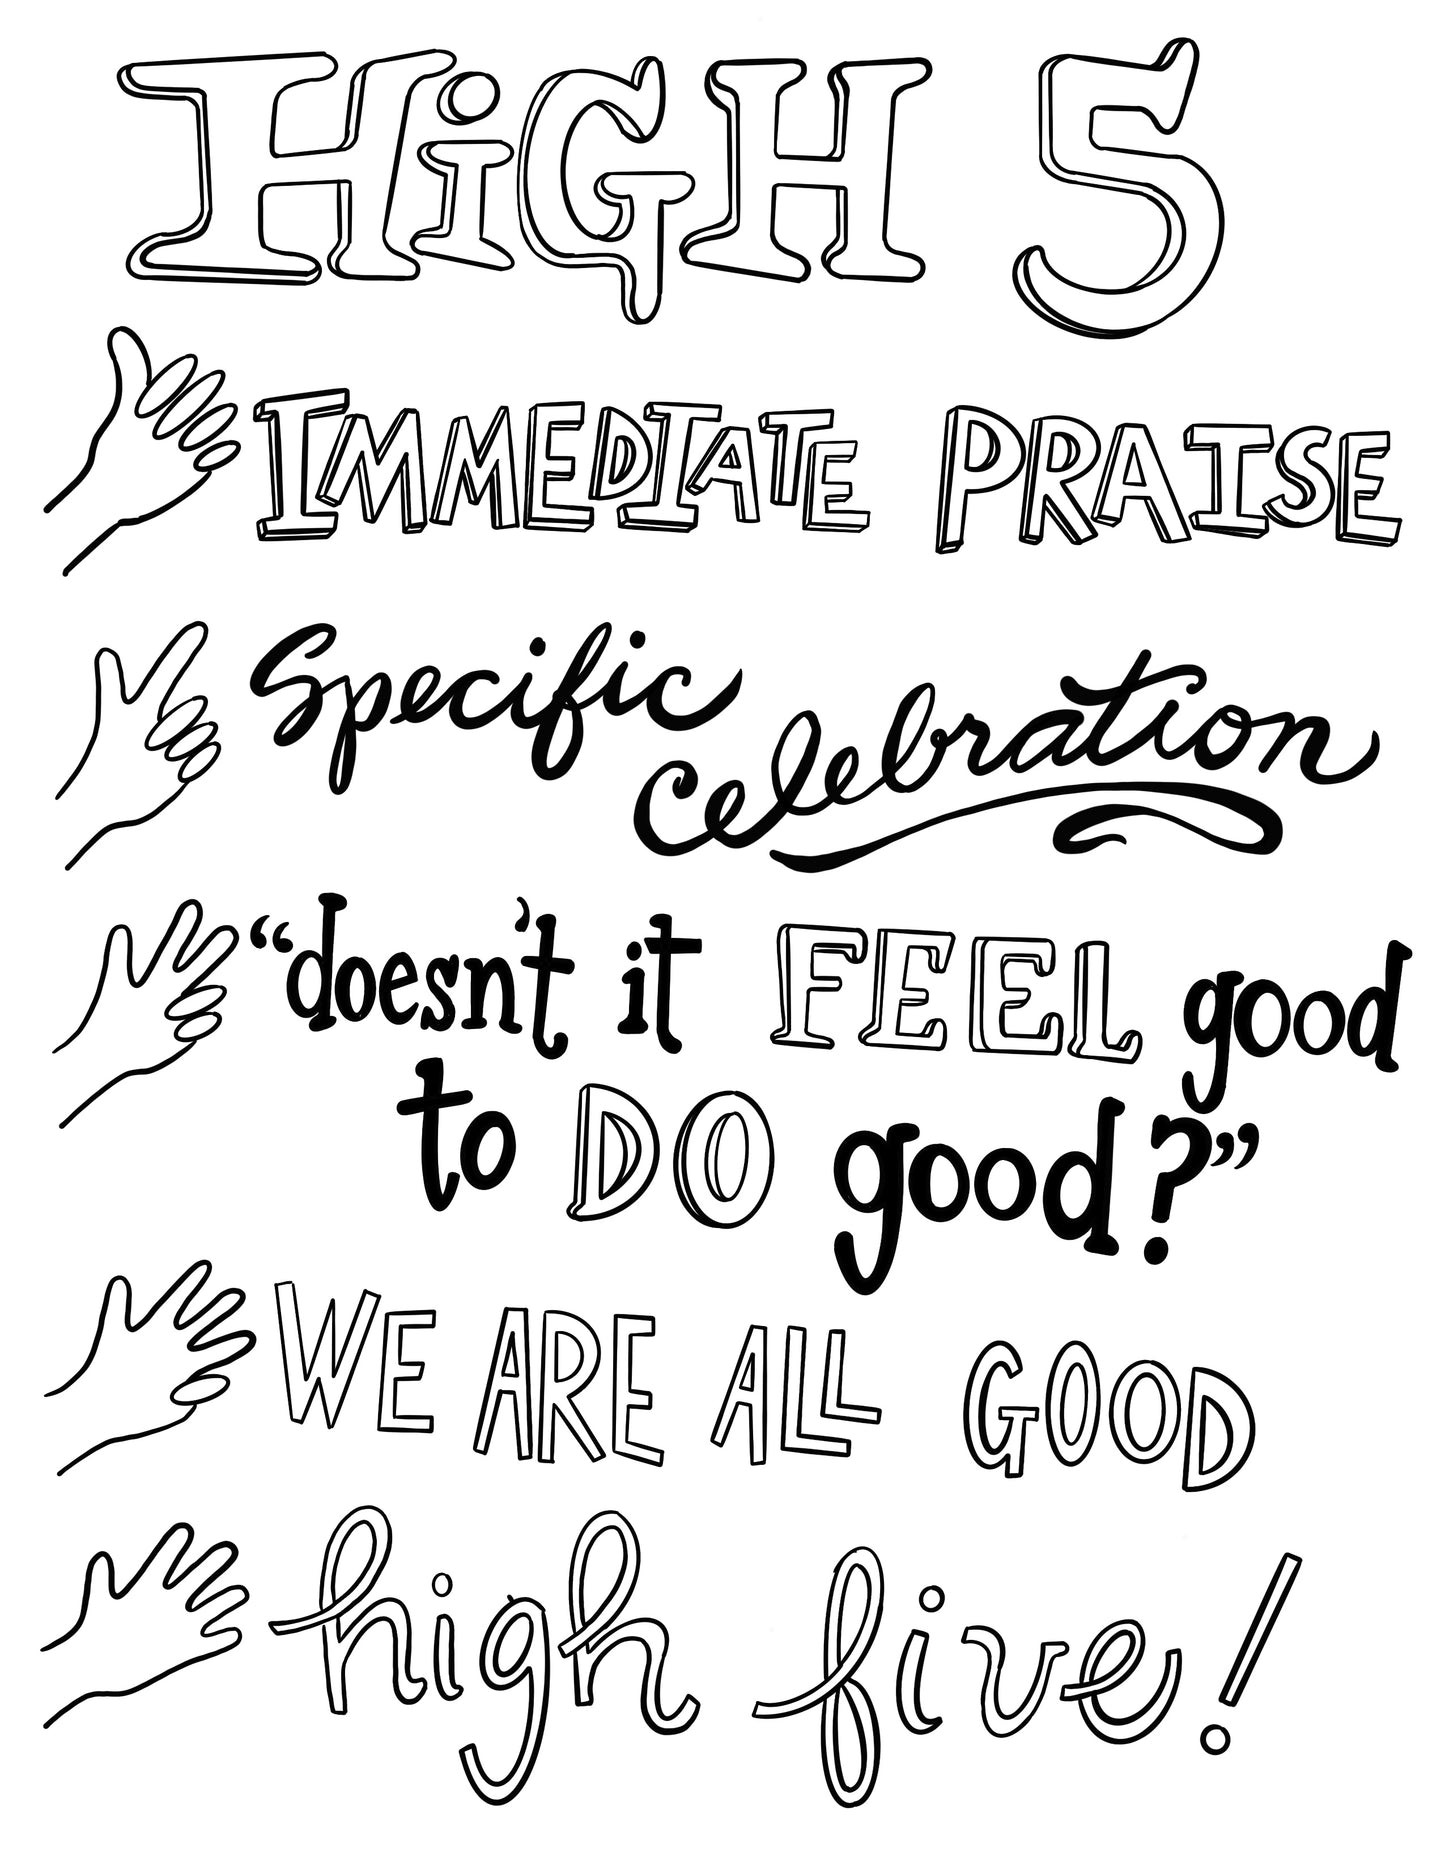 HiGH 5
IMMEDIATE PRAISE
Specific
celebration
“doesn't it FEEL good
to DO good?”
WE ARE ALL GOOD
high five!